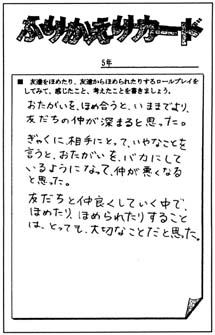 ふりかえりカード
5年
■ 友達をほめたり、友達からほめられたりするロールプレイを
してみて、感じたこと、考えたことを書きましょう。
おたがいを、ほめ合うと、いままでより、
友だちの仲が深まると思った。
ぎゃくに、相手にとって、いやなことを
言うと、おたがいを、バカにして
いるようになって、仲が悪くなる
と思った。
友だちと仲良くしていく中で、
ほめたり、ほめられたりすること
は、とっても、大切なことだと思った。